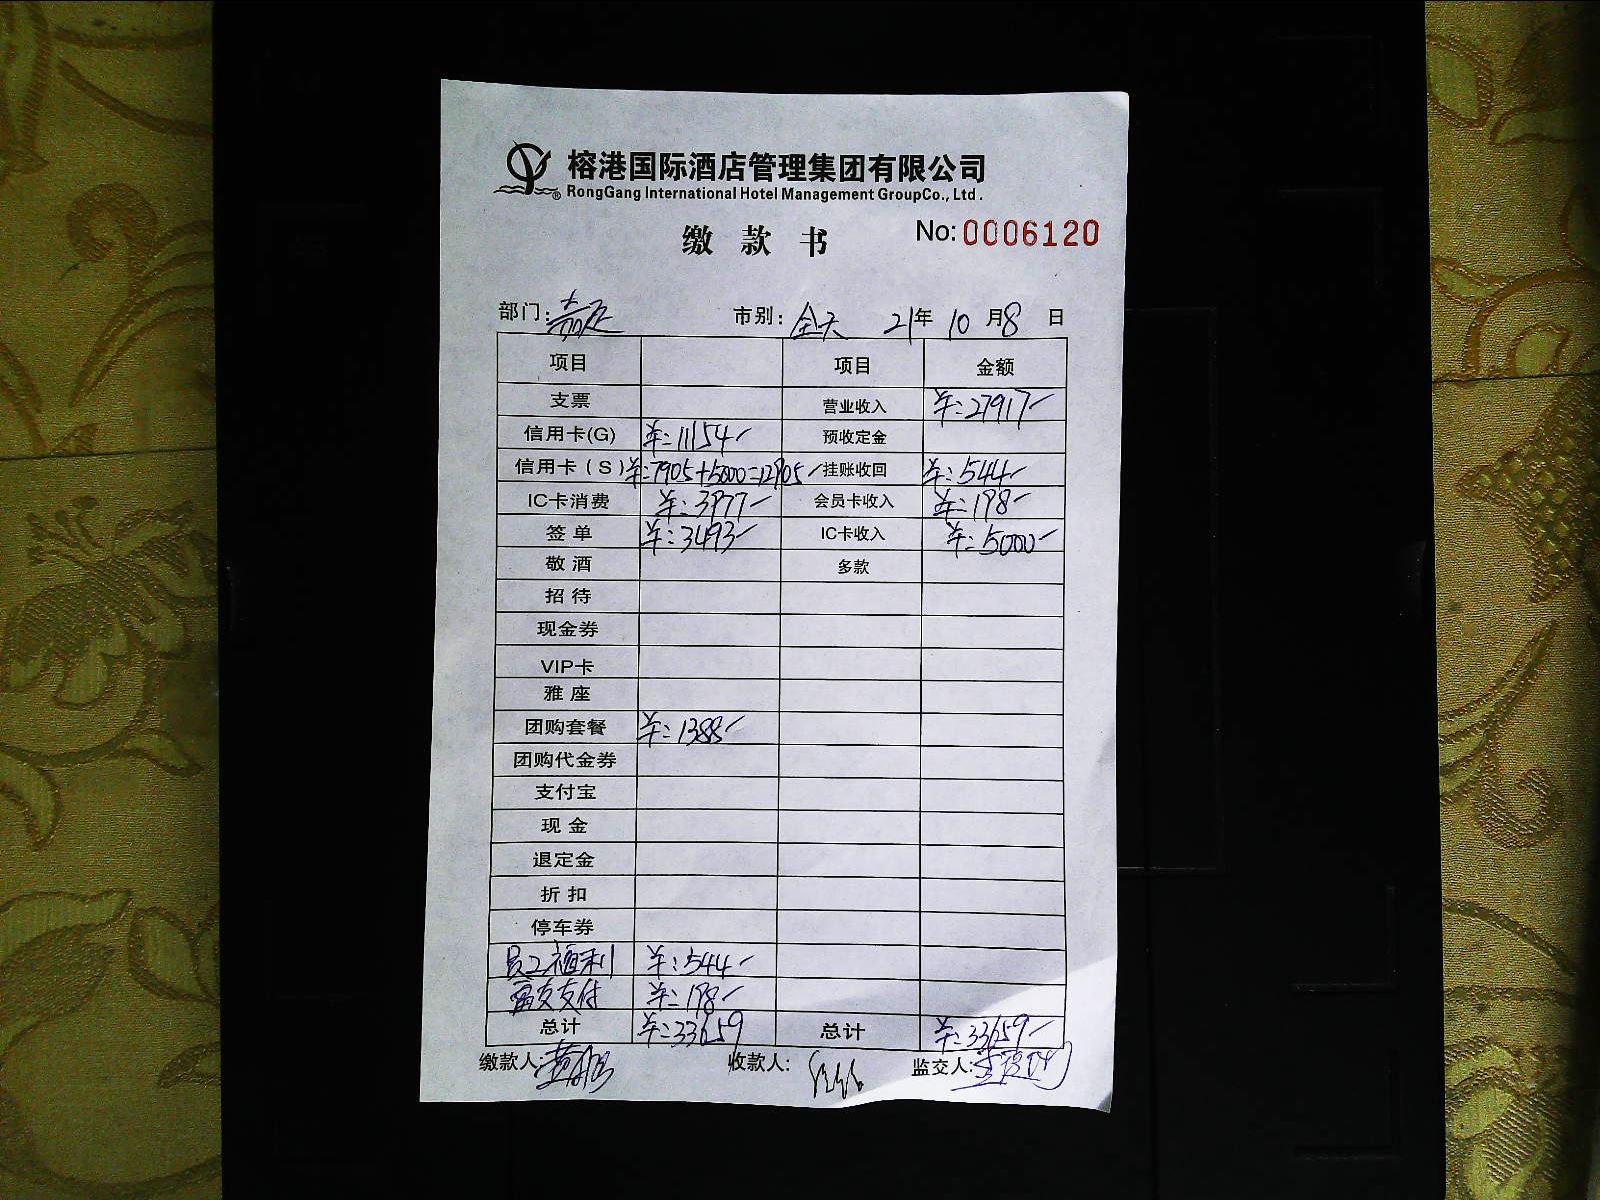 榕港国际酒店管理集团有限公司
RongGang International Hotel Management GroupCo., Ltd.
缴款书 No: 0006120
部门: 市别: 全天 21年 10月 8日
项目 项目 金额
支票 营业收入 ¥:27917
信用卡(G) ¥:11154 预收定金
信用卡(S) ¥:7905+5000=12905 挂账收回 ¥:544
IC卡消费 ¥:3977 会员卡收入 ¥:198
签单 ¥:3493 IC卡收入 ¥:5000
敬酒 多款
招待
现金券
VIP卡
雅座
团购套餐 ¥:1388
团购代金券
支付宝
现金
退定金
折扣
停车券
员工福利 ¥:544
富友支付 ¥:198
总计 ¥:33659 总计 ¥:33659
缴款人: 收款人: 监交人: